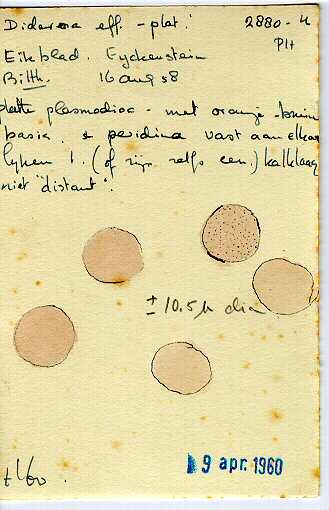 Diderma eff. - plat! 2880-4
Plt
Eikblad. Eyckenstein
Bilth. 16 aug 58
platte plasmodioc - met oranje-bruin
basis. 2 peridina vast aan elkaar
lyken! (of zijn zelfs een) kalklaag
niet "distant".
± 10.5 µ dia
9 apr. 1960